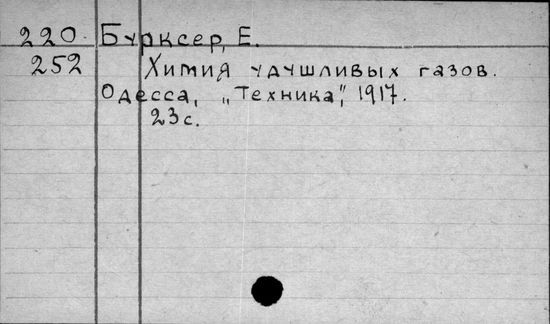 220 Бурксер, Е.
252 Химия удушливых газов.
Одесса, „Техника", 1917.
23 с.